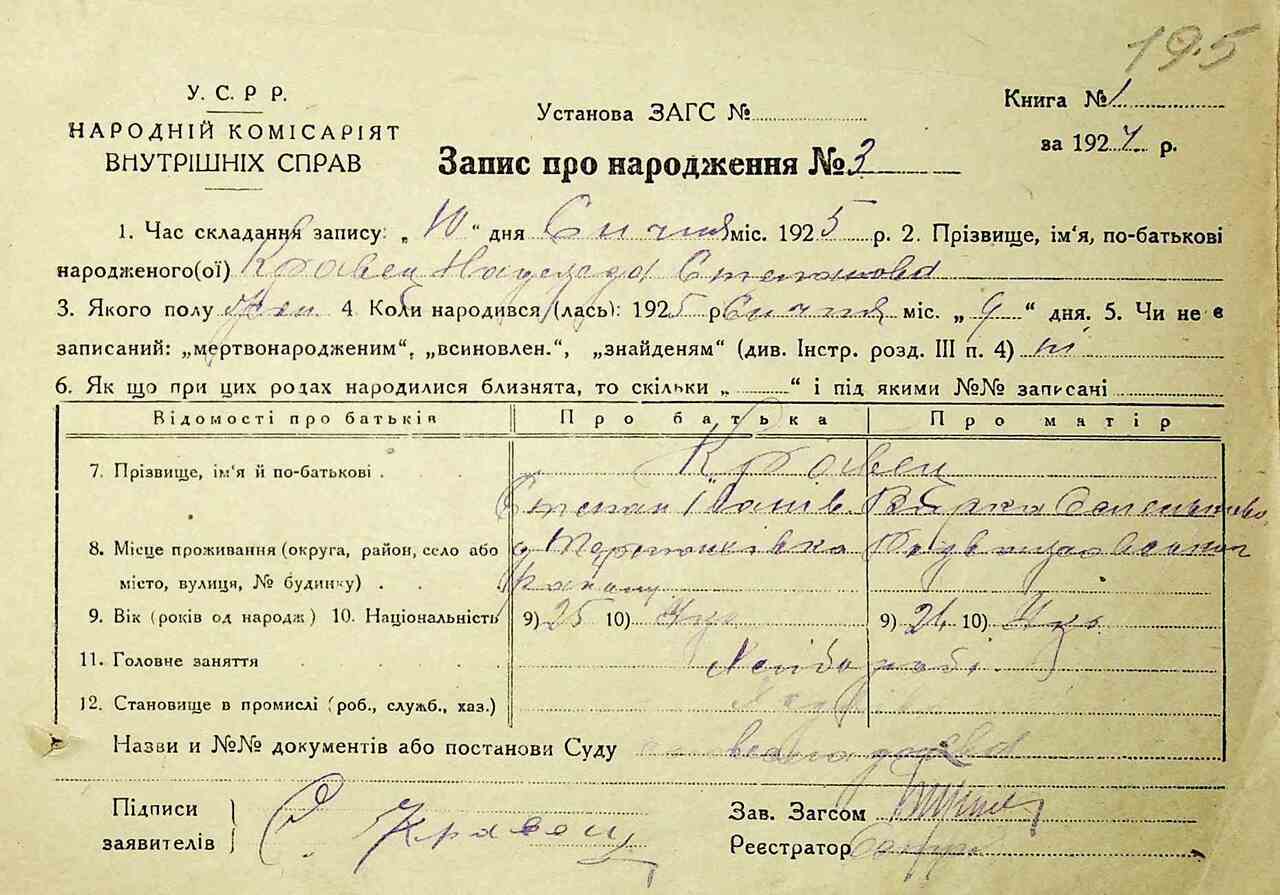 195
У. С. Р Р.
НАРОДНІЙ КОМІСАРІЯТ
ВНУТРІШНІХ СПРАВ
Установа ЗАГС №
Книга № 1
за 1927 р.
Запис про народження № 3
1. Час складання запису: „ 10 “ дня Січня міс. 1925 р. 2. Прізвище, ім‘я, по-батькові
народженого(ої) Кравец Надежда Степанова
3. Якого полу жен. 4 Коли народився (лась): 1925 р Січня міс. „ 9 “ дня. 5. Чи не є
записаний: „мертвонародженим“, „всиновлен.“, „знайденям“ (див. Інстр. розд. III п. 4) ні
6. Як що при цих родах народилися близнята, то скільки „ “ і під якими №№ записані
Відомості про батьків Про батька Про матір
7. Прізвище, ім‘я й по-батькові . Кравец
Степан Іванів.
8. Місце проживання (округа, район, село або
місто, вулиця, № будинку) . . .
9. Вік (років од народж) 10. Національність 9) 25 10) Укр 9) 21 10) Укр.
11. Головне заняття . . . . Хліборобі.
12. Становище в промислі (роб., служб., хаз.)
Назви и №№ документів або постанови Суду
Підписи
заявителів
С. Кравець
Зав. Загсом
Реєстратор